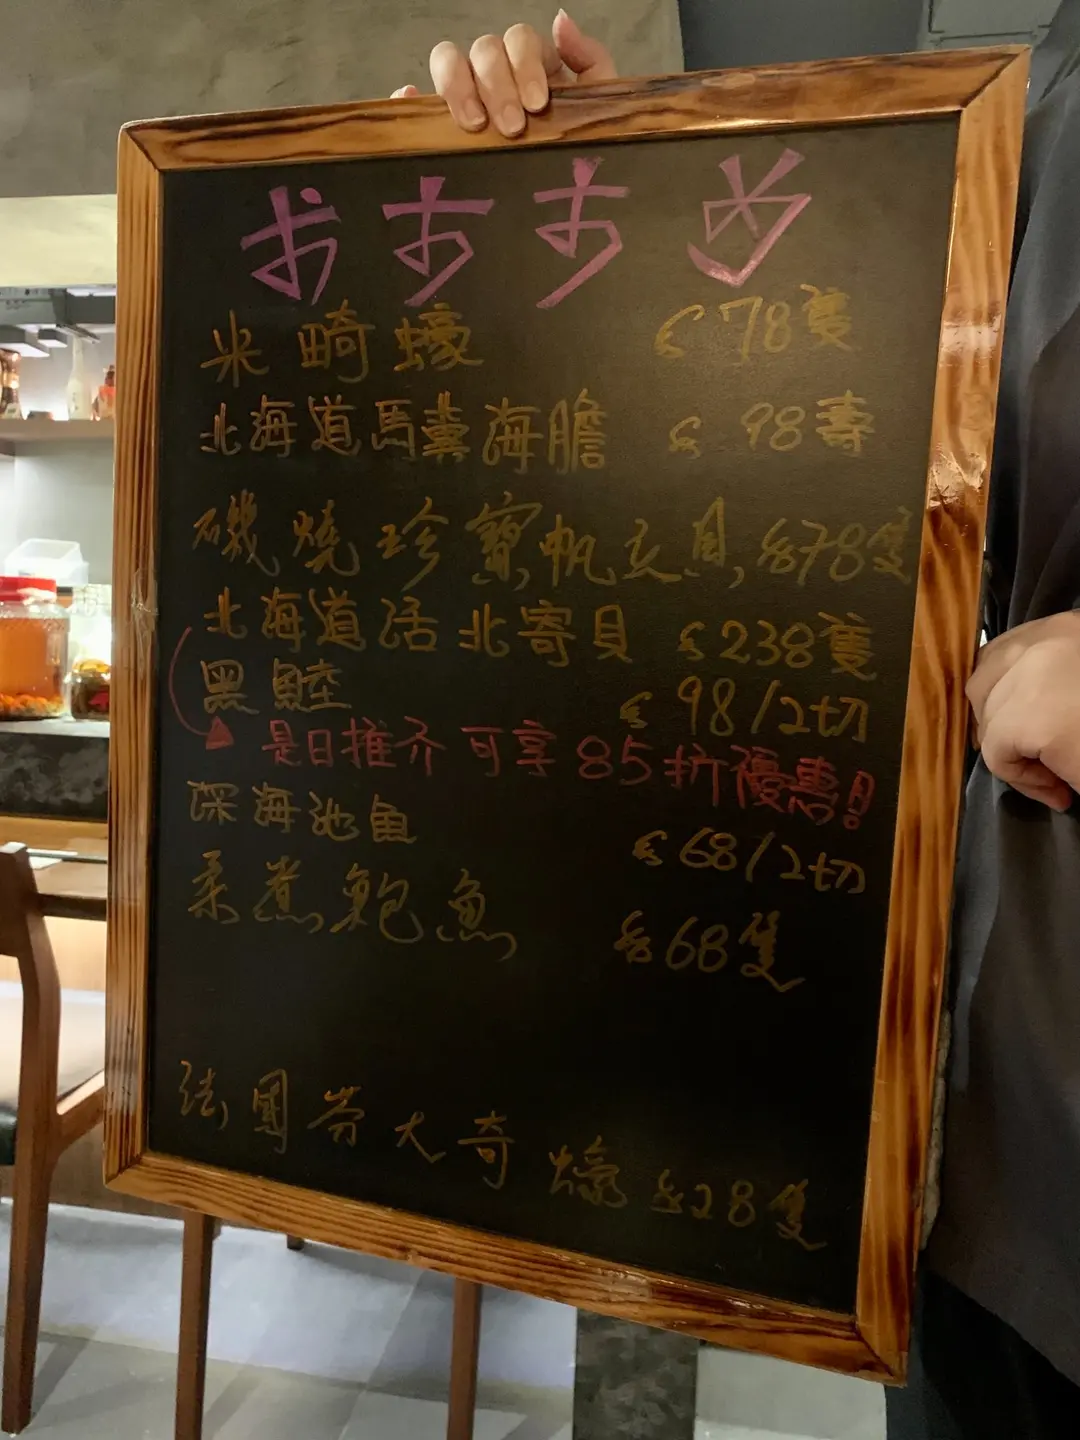 おすすめ
米崎蠔 $78隻
北海道馬糞海膽 $98壽
磯燒珍寶帆立貝 $78隻
北海道活北寄貝 $238隻
黑鯥 $98/2切
是日推介可享85折優惠!
深海池魚 $68/2切
柔煮鮑魚 $68隻
法國芬大奇蠔 $28隻